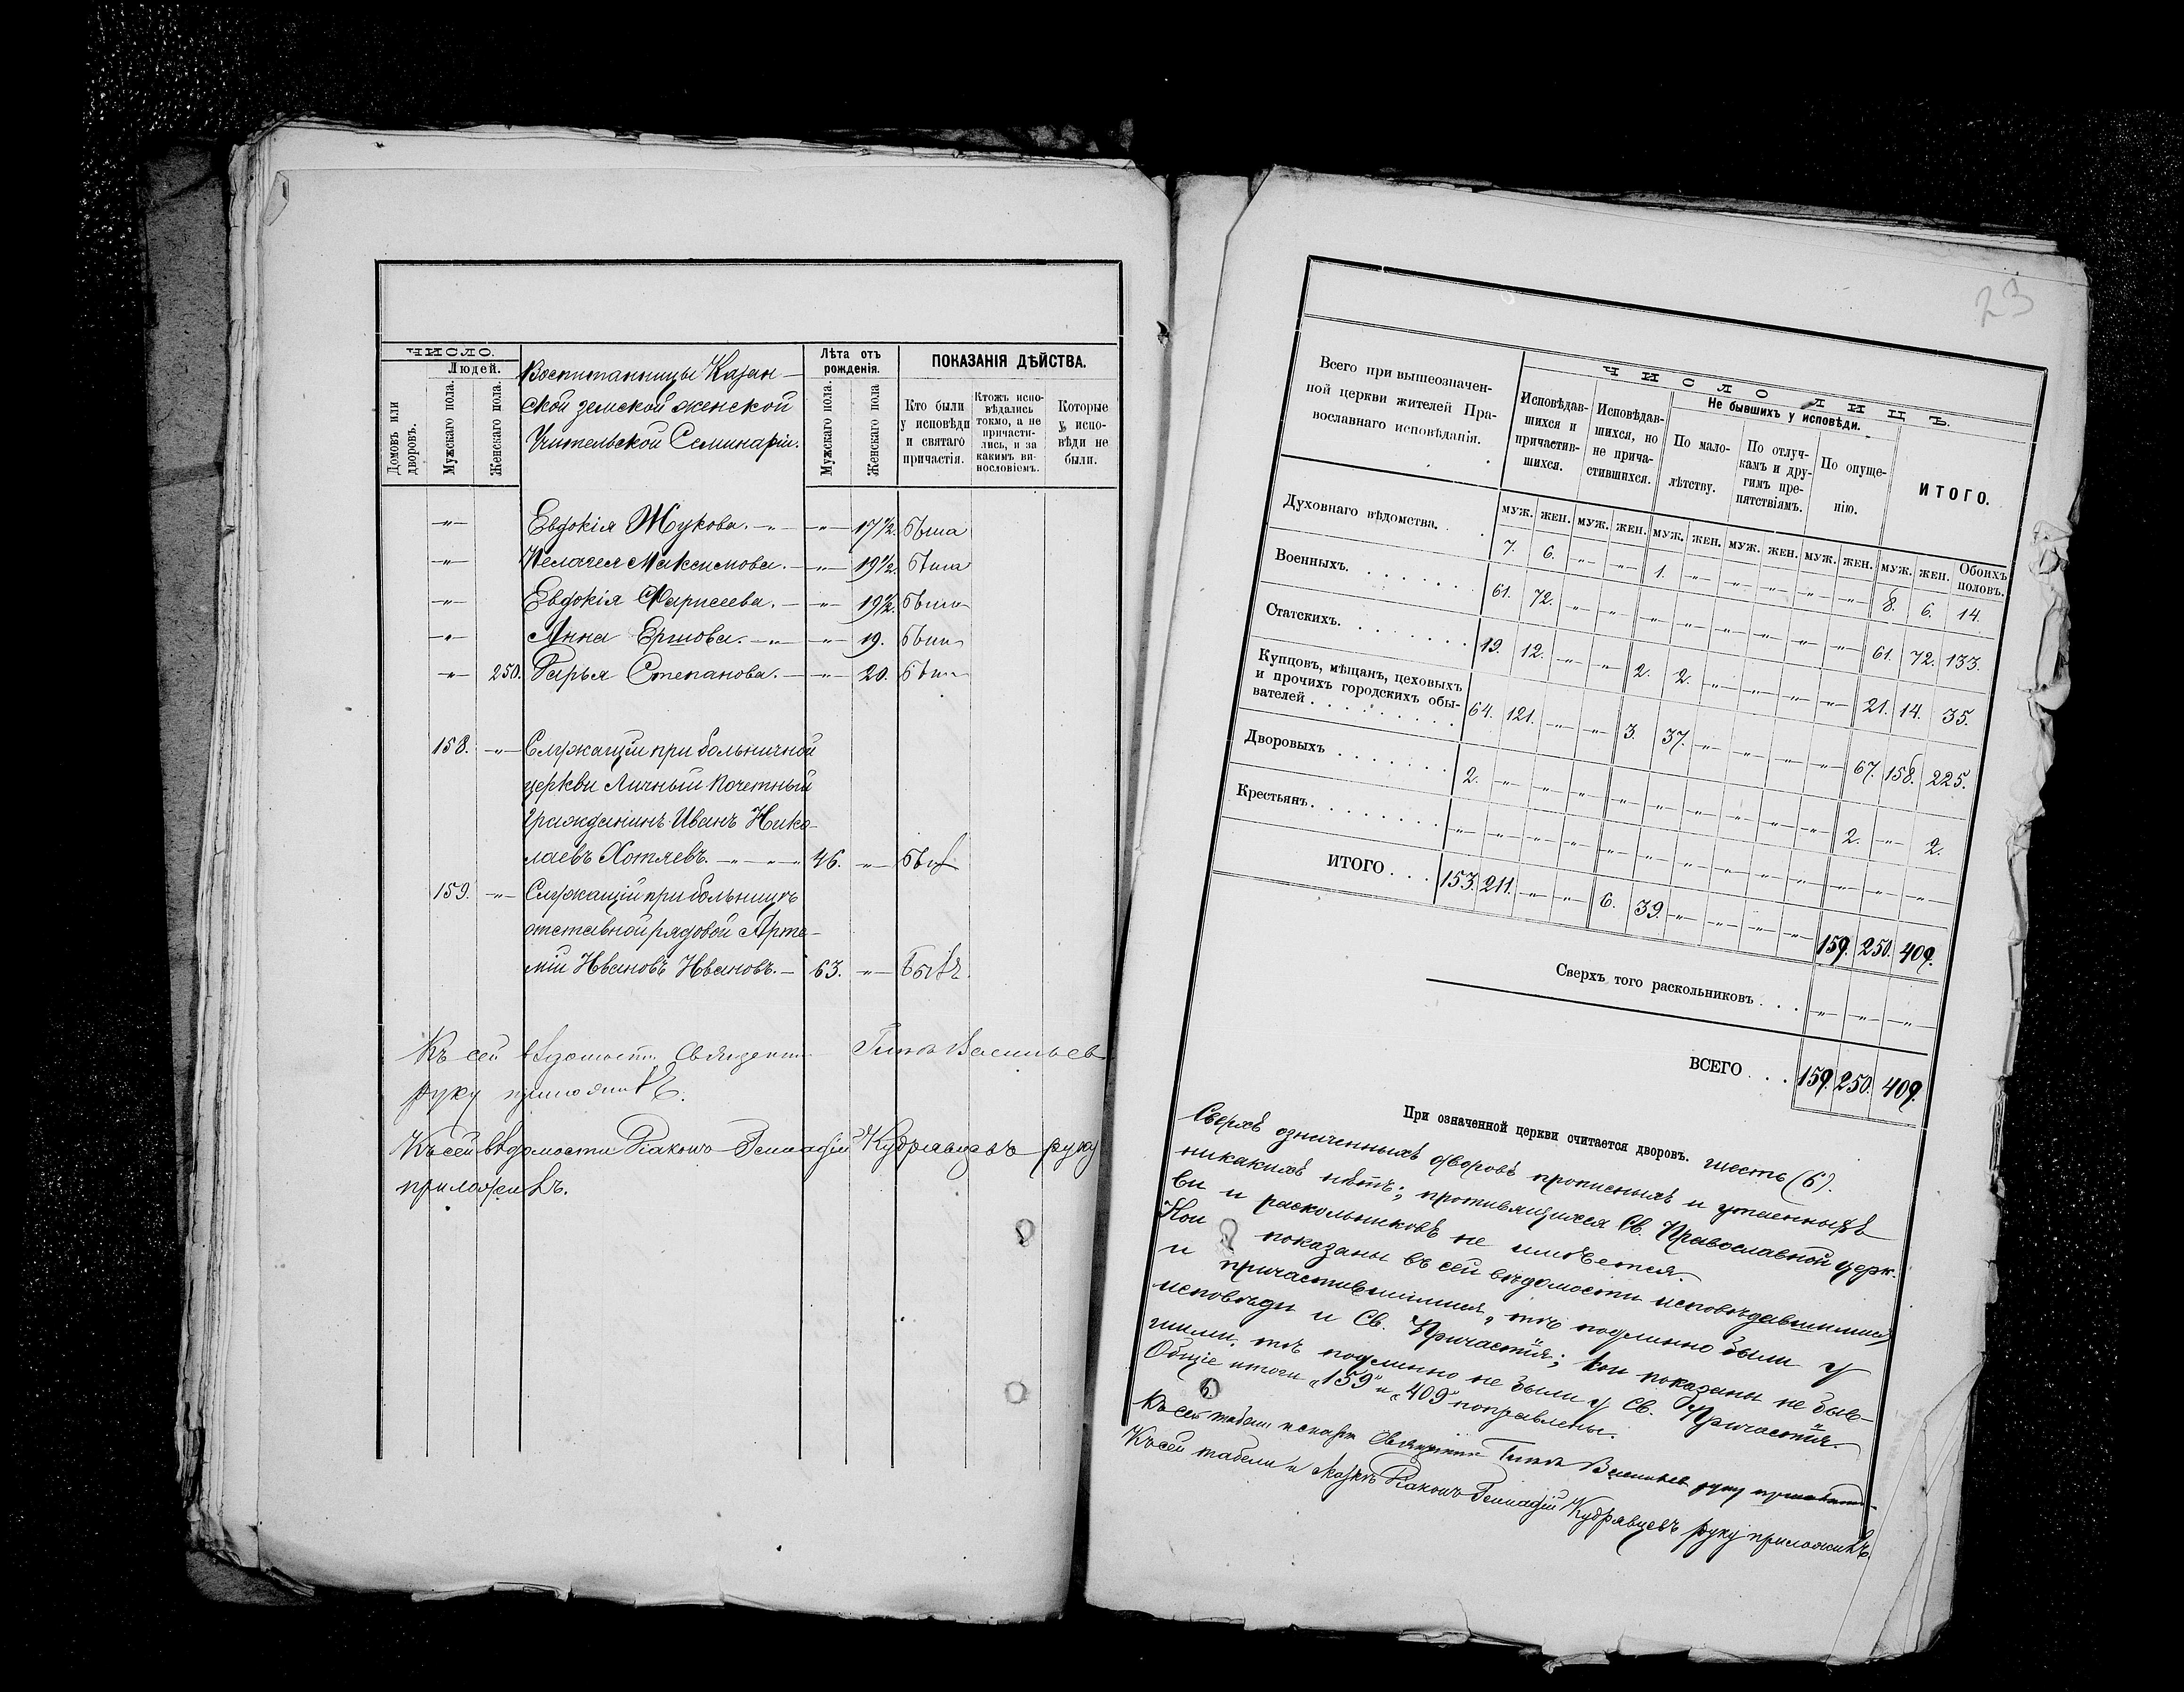 ЧИСЛО.
Людей.
Домовъ или дворовъ.
Мужскаго пола.
Женскаго пола.
Воспитанницы Казан-
ской земской женской
Учительской Семинаріи.
Лѣта отъ рожденія.
Мужскаго пола.
Женскаго пола
ПОКАЗАНІЯ ДѢЙСТВА.
Кто были у исповѣди и святаго причастія.
Ктожъ испо-вѣдались токмо, а не причасти-лись, и за какимъ ви-нословіемъ.
Которые у испо-вѣди не были.
-„- Евдокія Жукова. -„- -„- 17½. была
-„- Пелагея Максимова. -„- 19½. была
-„- Евдокія -„- 19½. была
-„- Анна Ершова. -„- -„- 19. была
-„- 250. Дарья Степанова. -„- 20. была
158. -„- Служащій при больничной
церкви Личный Почетный
Гражданинъ Иванъ Нико-
лаевъ Хотяевъ. -„- -„- 46. -„- былъ
159. -„- Служащій при больницѣ
отставной рядовой Арте-
мій Ивановъ Ивановъ. - 63. -„- Былъ.
Къ сей вѣдомости Священникъ Васильевъ
руку приложилъ.
Къ сей вѣдомости Діаконъ Геннадій Кудрявцевъ руку
приложилъ.
23
Всего при вышеозначен-
ной церкви жителей Пра-
вославнаго исповѣданія.
ЧИСЛО ЛИЦЪ.
Исповѣдав-шихся и причастив-шихся.
Исповѣдав-шихся, но не прича-стившихся.
Не бывшихъ у исповѣди.
По мало-лѣтству.
По отлуч-камъ и дру-гимъ пре-пятствіямъ.
По опуще-нію.
ИТОГО.
муж. жен. муж. жен. муж. жен. муж. жен. муж. жен. муж. жен. Обоихъ половъ.
Духовнаго вѣдомства. . . 7. 6. -„- -„- 1. -„- -„- -„- -„- -„- 8. 6. 14.
Военныхъ. . . . . . . . 61. 72. -„- -„- -„- -„- -„- -„- -„- -„- 61. 72. 133.
Статскихъ. . . . . . . . 19. 12. -„- -„- 2. 2. -„- -„- -„- -„- 21. 14. 35.
Купцовъ, мѣщанъ, цеховыхъ
и прочихъ городскихъ обы-
вателей . . . . . . . . . 64. 121. -„- -„- 3. 37. -„- -„- -„- -„- 67. 158. 225.
Дворовыхъ . . . . . . . 2. -„- -„- -„- -„- -„- -„- -„- -„- -„- 2. -„- 2.
Крестьянъ. . . . . . . . -„- -„- -„- -„- -„- -„- -„- -„- -„- -„- -„- -„- -„-
ИТОГО . . . 153. 211. -„- -„- 6. 39. -„- -„- -„- -„- 159. 250. 409.
Сверхъ того раскольниковъ . . . -„- -„- -„-
ВСЕГО . . . 159. 250. 409.
При означенной церкви считается дворовъ. шесть (6).
Сверхъ означенныхъ дворовъ прописныхъ и утаенныхъ
никакихъ нѣтъ; противящихся Св. Православной Церк-
ви и раскольниковъ не имѣется.
Кои показаны въ сей вѣдомости исповѣдавшимися
и причастившимися, тѣ подлинно были у
исповѣди и Св. Причастія; кои показаны не быв-
шими, тѣ подлинно не были у Св. Причастія.
Общіе итоги „159“ и „409“ поправлены.
Къ сей табели Священникъ Васильевъ руку приложилъ
Къ сей табели и Діаконъ Геннадій Кудрявцевъ руку приложилъ.